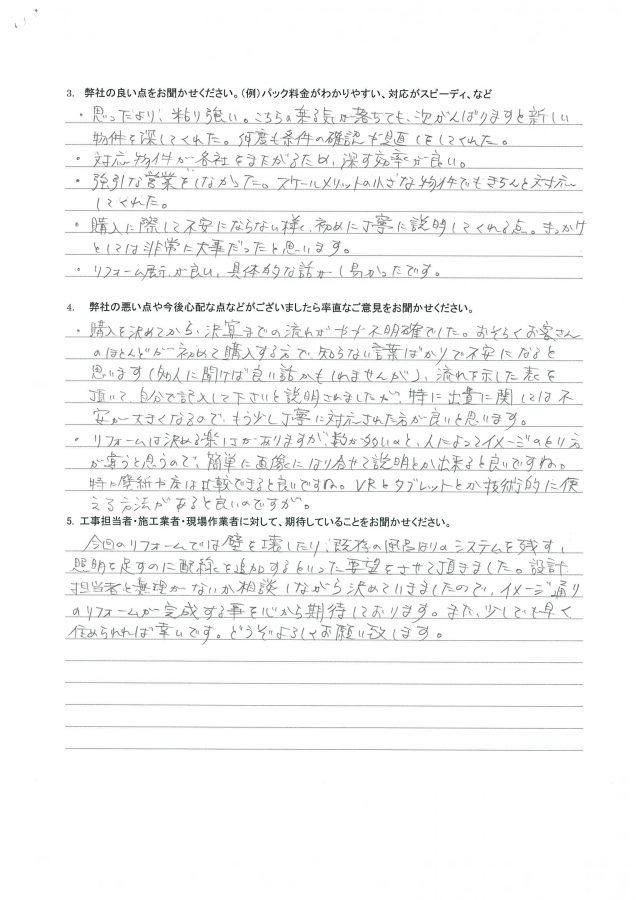 3. 弊社の良い点をお聞かせください。（例）パック料金がわかりやすい、対応がスピーディ、など
・思ったより、粘り強い。こちらの乗る気が落ちても、次がんばりますと新しい
物件を探してくれた。何度も条件の確認や見直しをしてくれた。
・対応物件が各社をまたがるため、探す効率が良い。
・強引な営業をしなかった。スケールメリットの小さな物件でもきちんと対応
してくれた。
・購入に際して不安にならない様に、初めに丁寧に説明してくれる点。きっかけ
としては非常に大事だったと思います。
・リフォーム展示が良い、具体的な話がし易かったです。
4. 弊社の悪い点や今後心配な点などがございましたら率直なご意見をお聞かせください。
・購入を決めてから、決算までの流れがやや不明確でした。おそらくお客さん
のほとんどが初めて購入する方で、知らない言葉ばかりで不安になると
思います（他人に聞けば良い話かもしれませんが）、流れを示した表を
頂いて、自分で記入して下さいと説明されましたが、特に出費に関しては不
安が大きくなるので、もう少し丁寧に対応された方が良いと思います。
・リフォームは決める楽しさがありますが、数が多いのと、人によってイメージのとり方
が違うと思うので、簡単に画像にはり合せて説明とか出来ると良いですね。
特に壁紙や床は比較できると良いですね。VRとタブレットとか技術的に使
える方法があると良いのですが。
5. 工事担当者・施工業者・現場作業者に対して、期待していることをお聞かせください。
今回のリフォームでは壁を壊したり、既存の風呂まわりのシステムを残す、
照明を足すのに配線を追加するといった要望をさせて頂きました。設計
担当者と無理がないか相談しながら決めていきましたので、イメージ通り
のリフォームが完成する事を心から期待しております。また、少しでも早く
住められれば幸いです。どうぞよろしくお願い致します。